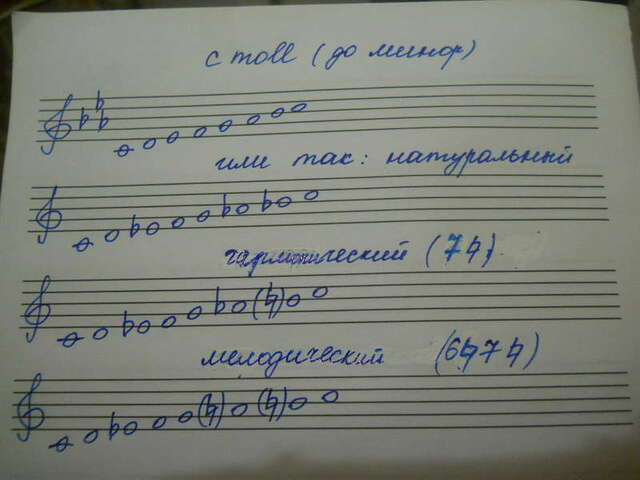 c moll (до минор)
или так: натуральный
гармонический (7♮)
мелодический (6♮7♮)